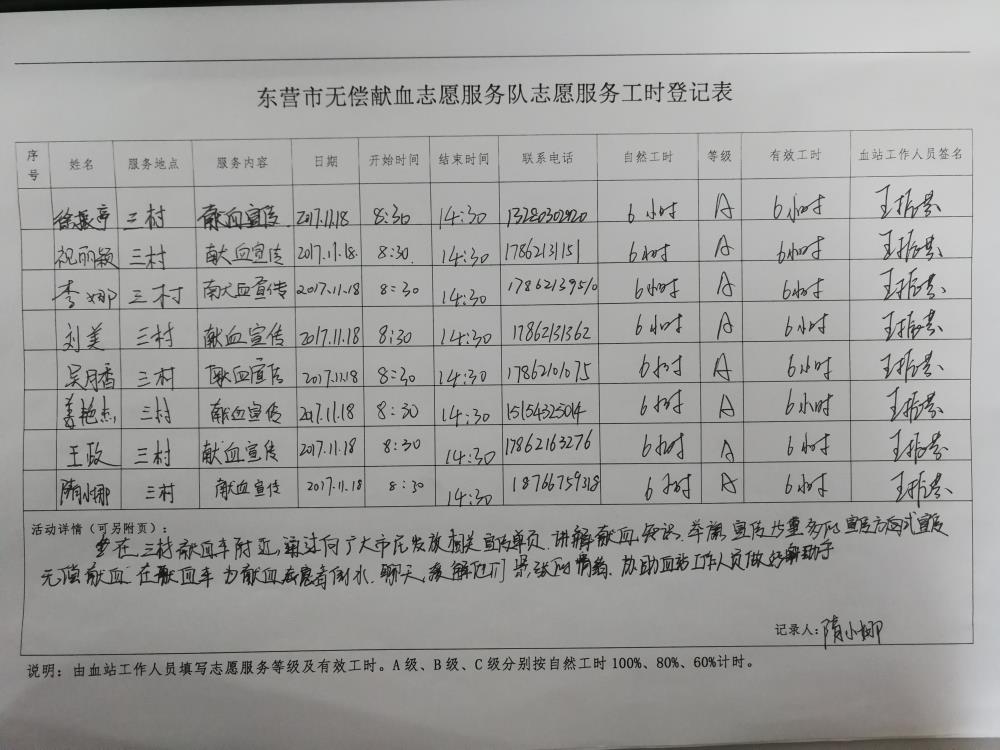 东营市无偿献血志愿服务队志愿服务工时登记表
序号 姓名 服务地点 服务内容 日期 开始时间 结束时间 联系电话 自然工时 等级 有效工时 血站工作人员签名
徐振亭 三村 献血宣传 2017.11.18 8:30 14:30 13280302920 6小时 A 6小时
祝丽颖 三村 献血宣传 2017.11.18 8:30 14:30 17862131151 6小时 A 6小时
李娜 三村 献血宣传 2017.11.18 8:30 14:30 17862139510 6小时 A 6小时
刘美 三村 献血宣传 2017.11.18 8:30 14:30 17862131362 6小时 A 6小时
吴月香 三村 献血宣传 2017.11.18 8:30 14:30 17862101075 6小时 A 6小时
姜艳杰 三村 献血宣传 2017.11.18 8:30 14:30 15154325014 6小时 A 6小时
王政 三村 献血宣传 2017.11.18 8:30 14:30 17862163276 6小时 A 6小时
隋小娜 三村 献血宣传 2017.11.18 8:30 14:30 18766759318 6小时 A 6小时
活动详情（可另附页）：
在三村献血车附近，通过向广大市民发放相关宣传单页、讲解献血知识、举牌宣传 宣传方式宣传
无偿献血 在献血车为献血志愿者倒水、聊天，缓解他们紧张的情绪。协助血站工作人员做好 助手
记录人：隋小娜
说明：由血站工作人员填写志愿服务等级及有效工时。A级、B级、C级分别按自然工时100%、80%、60%计时。